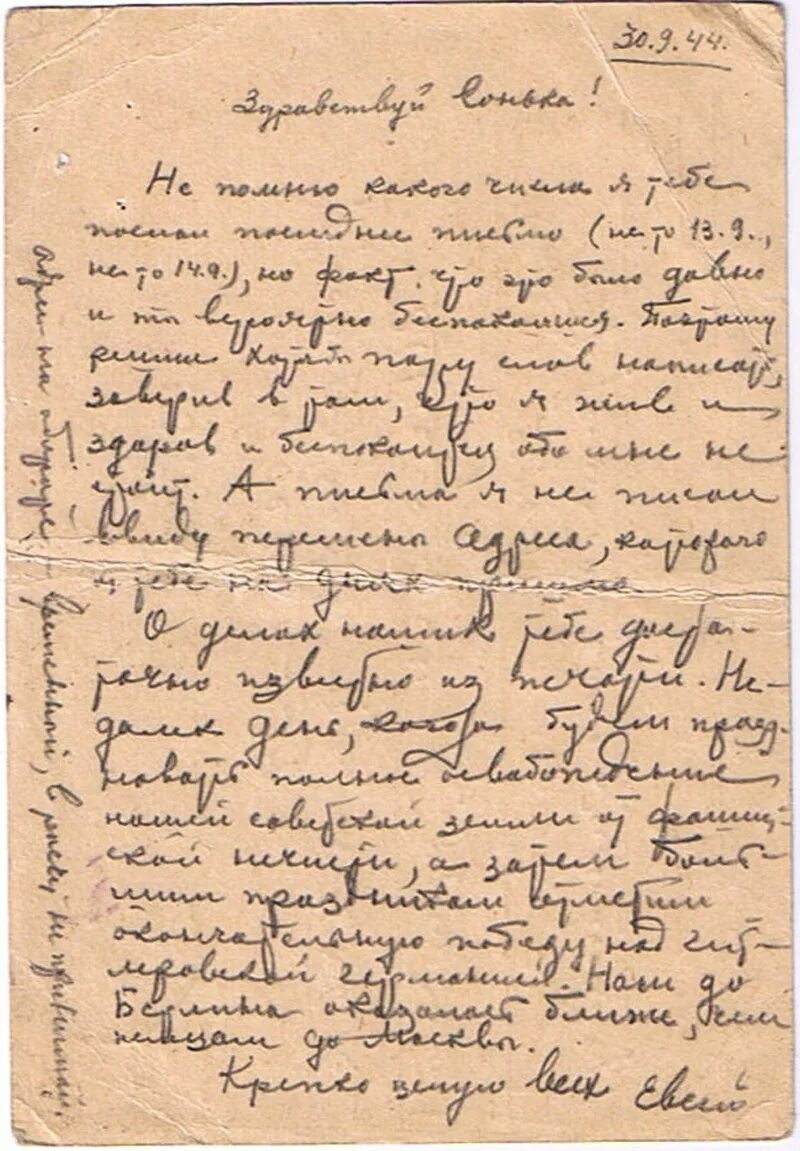 30.9.44.
Здравствуй Сонька!
Не помню какого числа я тебе
послал последнее письмо (не то 13.9.,
не то 14.9.), но факт, что это было давно
и ты вероятно беспокоишься. Поэтому
решил хотя бы пару слов написать,
заверив в том, что я жив и
здоров и беспокоиться обо мне не
стоит. А письма я не писал
ввиду перемены адреса, которого
я тебе на днях пришлю.
О делах наших тебе доста-
точно известно из печати. Не-
далек день, когда будем празд-
новать полное освобождение
нашей советской земли от фашист-
ской нечисти, а затем боль-
шим праздником отметим
окончательную победу над гит-
леровской Германией. Нам до
Берлина оказалось ближе, чем
немцам до Москвы.
Крепко целую всех Евсей
Адрес на обороте – временный, по нему не пиши